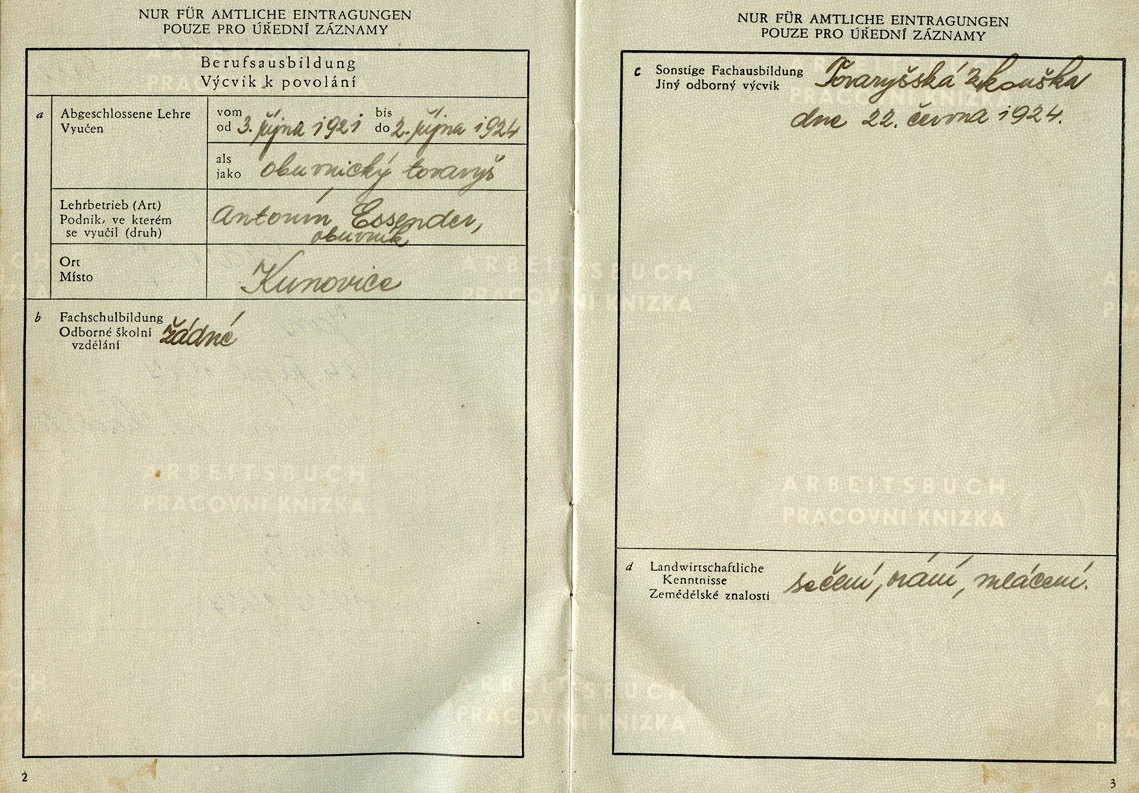 NUR FÜR AMTLICHE EINTRAGUNGEN
POUZE PRO ÚŘEDNÍ ZÁZNAMY
Berufsausbildung
Výcvik k povolání
a Abgeschlossene Lehre
Vyučen
vom bis
od 3. října 1921 do 2. října 1924
als
jako obuvnický tovaryš
Lehrbetrieb (Art)
Podnik, ve kterém
se vyučil (druh)
Antonín Essender,
obuvník
Ort
Místo
Kunovice
b Fachschulbildung
Odborné školní
vzdělání
žádné
ARBEITSBUCH
PRACOVNI KNIZKA
2
NUR FÜR AMTLICHE EINTRAGUNGEN
POUZE PRO ÚŘEDNÍ ZÁZNAMY
c Sonstige Fachausbildung
Jiný odborný výcvik
Tovaryšská zkouška
dne 22. června 1924.
ARBEITSBUCH
PRACOVNI KNIZKA
d Landwirtschaftliche
Kenntnisse
Zemědělské znalosti
sečení, orání, mlácení.
ARBEITSBUCH
PRACOVNI KNIZKA
3